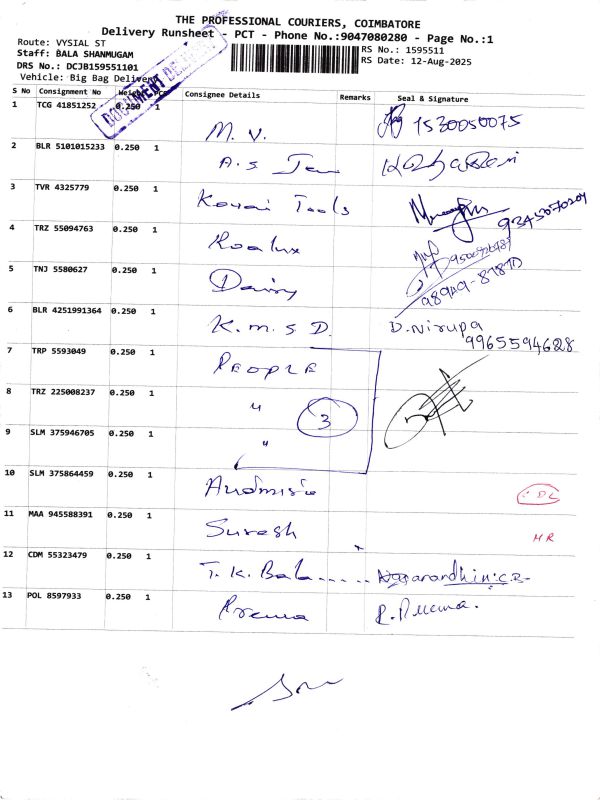 THE PROFESSIONAL COURIERS, COIMBATORE
Delivery Runsheet - PCT - Phone No.:9047080280 - Page No.:1
Route: VYSIAL ST
Staff: BALA SHANMUGAM
DRS No.: DCJB159551101
Vehicle: Big Bag Delivery
RS No.: 1595511
RS Date: 12-Aug-2025
S No Consignment No Weight Pcs Consignee Details Remarks Seal & Signature
1 TCG 41851252 0.250 1 M. V. 1530050075
2 BLR 5101015233 0.250 1 A. S.
3 TVR 4325779 0.250 1 Kovai Tools 9345070204
4 TRZ 55094763 0.250 1 Roalux
5 TNJ 5580627 0.250 1 Dairy 98949-87870
6 BLR 4251991364 0.250 1 K. M. S D. D. Nirupa
9965594628
7 TRP 5593049 0.250 1 PEOPLE
8 TRZ 225008237 0.250 1 " 3
9 SLM 375946705 0.250 1 "
10 SLM 375864459 0.250 1 DL
11 MAA 945588391 0.250 1 Suresh MR
12 CDM 55323479 0.250 1 T. K. Bala.....
13 POL 8597933 0.250 1 Prema